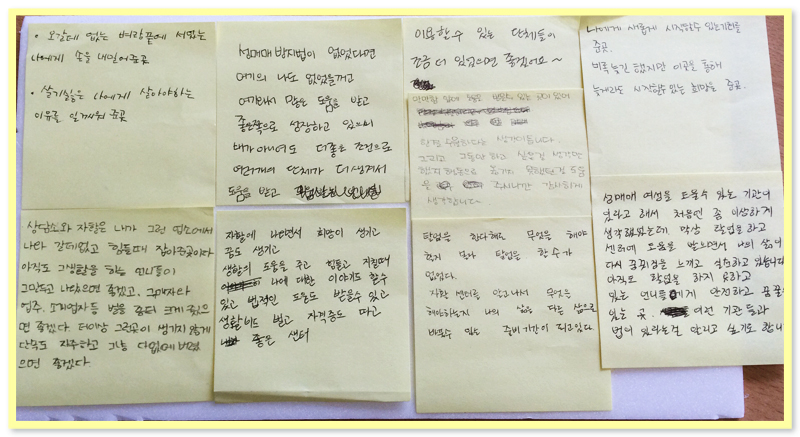 • 오갈데 없는 벼랑끝에 서있는
나에게 손을 내밀어준곳
• 살기싫은 나에게 살아야하는
이유를 일깨워 준곳
성매매 방지법이 없었다면
여기의 나도 없었을꺼고
여기라서 많은 도움 받고
좋은쪽으로 성장하고 있으니
내가 아니여도 더좋은 조건으로
여러개의 단체가 더 생겨서
도움을 받고
이용할수 있는 단체들이
조금 더 있었으면 좋겠어요~
나에게 새롭게 시작할수 있는기회를
준곳.
비록 늦긴 했지만 이곳을 통해
늦게라도 시작할수있는 희망을 준곳.
생각이듭니다.
그리고 그동안 하고 싶은걸 생각만
했지 행동으로 옮기지 못했던걸 도움
을 주시니깐 감사하게
생각합니다.
상담소와 자활은 내가 그런 업소에서
나와 갈데없고 힘들때 잡아준곳이다
아직도 그생활을 하는 언니들이
그만두고 나왔으면 좋겠고, 구매자와
업주, 소개업자등 벌을 좀더 크게 줬으
면 좋겠다. 더이상 그런곳이 생기지 않게
단속도 자주하고 기능 다없애 버렸
으면 좋겠다.
자활에 나오면서 희망이 생기고
꿈도 생기고
생활의 도움을 주고 힘들고 지칠때
나에 대한 이야기도 할수
있고 법적인 도움도 받을수 있고
생활비도 벌고 자격증도 따고
좋은 센터
탈업을 한다해도 무엇을 해야
할지 몰라 탈업을 할 수가
없었다.
자활 센터를 알고나서 무엇을
해야하는지 나의 삶은 다른 삶으로
바뀔수 있는 준비기간이 되고있다.
성매매 여성을 도울수 있는 기관이
있다고 해서 처음엔 좀 이상하게
생각했었는데, 막상 탈업을하고
센터에 도움을 받으면서 나의 삶이
다시 중요함을 느끼고 있습니다
아직도 탈업을 하지 못하고
있는 언니들에게 안전하고 꿈꿀
있는 곳. 여런 기관들과
법이 있다는걸 알리고 싶기도 합니